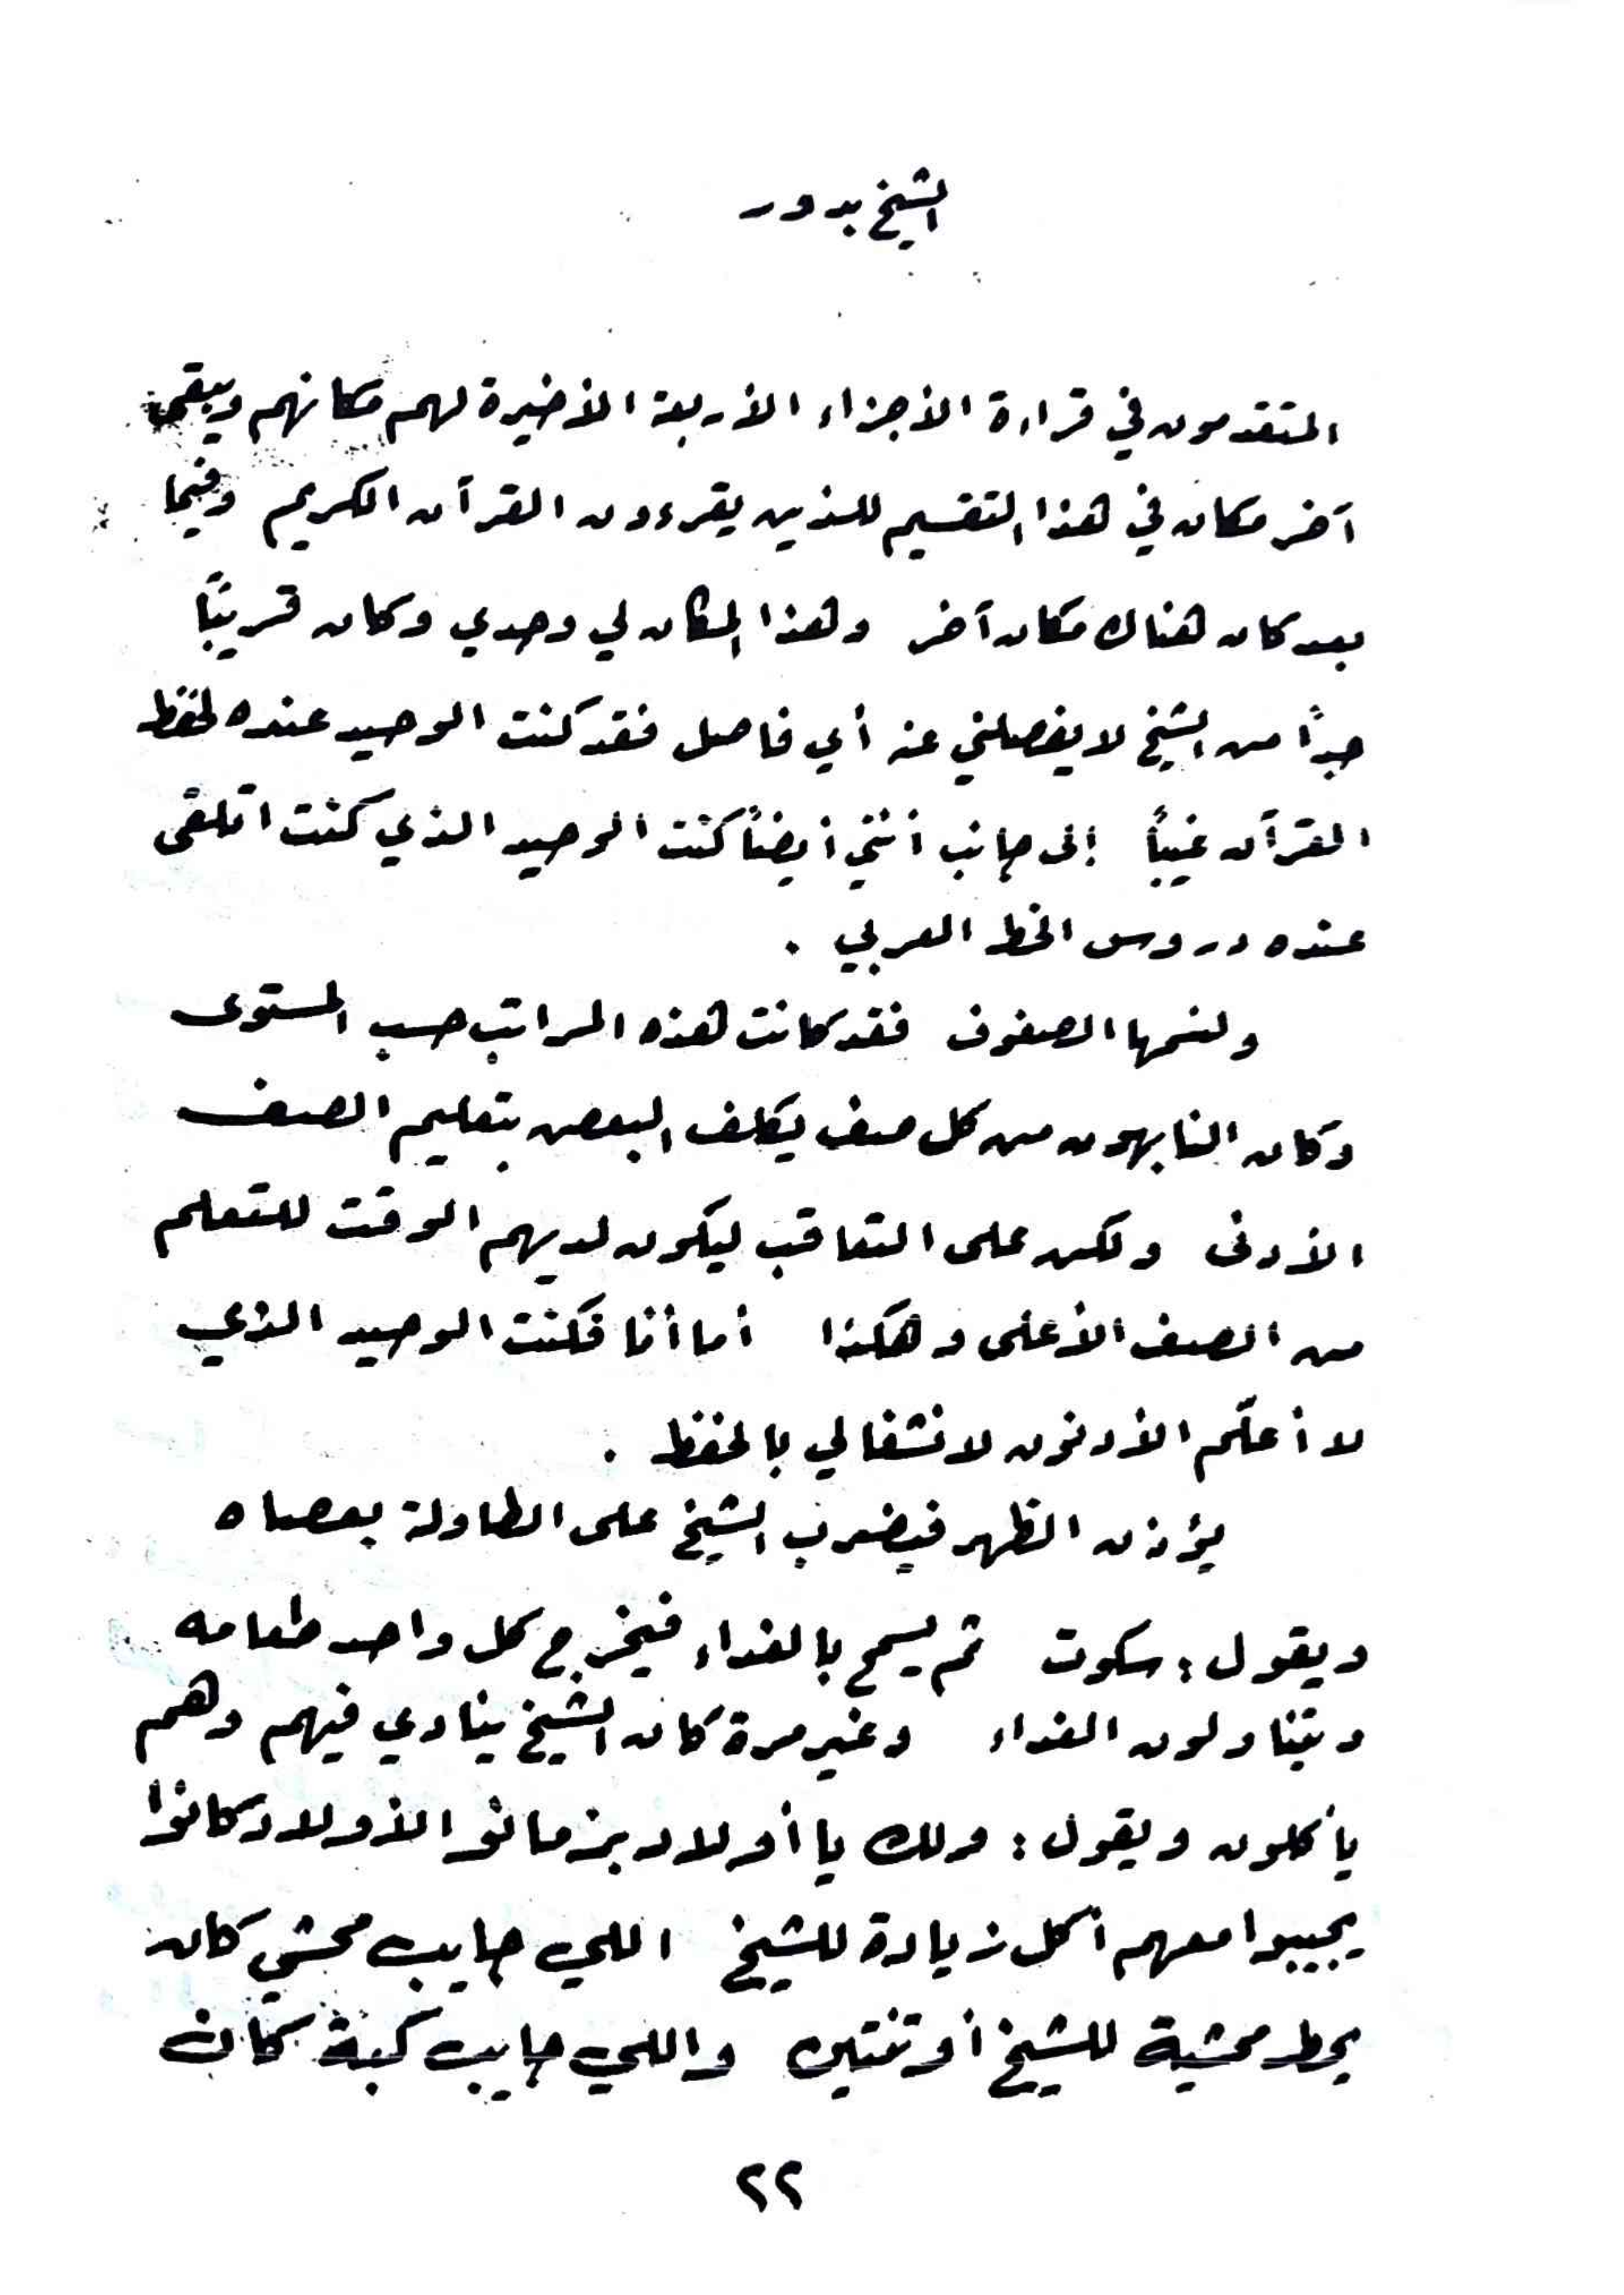 الشيخ بدور
المتقدمون في قراءة الأجزاء الأربعة الأخيرة لهم مكانهم ويبقى
آخر مكان في هذا التقسيم للذين يقرءون القرآن الكريم وفيما
بعد كان هناك مكان آخر وهذا المكان لي وحدي وكان قريبًا
جدًا من الشيخ لا يفصلني عنه أي فاصل فقد كنت الوحيد عنده لحفظ
القرآن غيبًا إلى جانب أنني أيضًا كنت الوحيد الذي كنت اتلقى
عنده دروس الخط العربي .
ولنسمها الصفوف فقد كانت هذه المراتب حسب المستوى
وكان النابهون من كل صف يكلف البعض بتعليم الصف
الأدنى ولكن على التعاقب ليكون لديهم الوقت للتعلم
من الصف الأعلى وهكذا أما أنا فكنت الوحيد الذي
لا أعلّم الأدنون لانشغالي بالحفظ .
يؤذن الظهر فيضرب الشيخ على الطاولة بعصاه
ويقول : سكوت ثم يسمح بالغداء فيخرج كل واحد طعامه
ويتناولون الغداء وغير مرة كان الشيخ ينادي فيهم وهم
يأكلون ويقول : ولك يا أولاد بزمانو الأولاد كانوا
يجيبوا معهم أكل زيادة للشيخ اللي جايب محشي كان
يحط محشية للشيخ أو تنتين واللي جايب كبة كان
٢٢